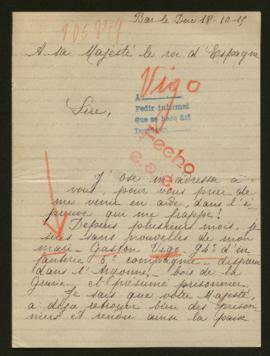 Bar le Duc 18-10-15
A sa Majesté le roi d'Espagne
Vigo
A
Pedir informes
Que se hará así
Sire,
Hecho
J'ose m'adresse à
vous, pour vous prier de
me venir en aide, dans l'é
preuve qui me frappe!
Depuis plusieurs mois, je
suis sans nouvelles de mon
mari Gaston Vigo, 94e d'in
fanterie 6e compagnie, disparu
dans l'Argonne, bois de la
Grurie, et présumé prisonnier.
Je sais que votre Majesté,
a déjà retrouver bien des prison
niers et rendu ainsi la paix